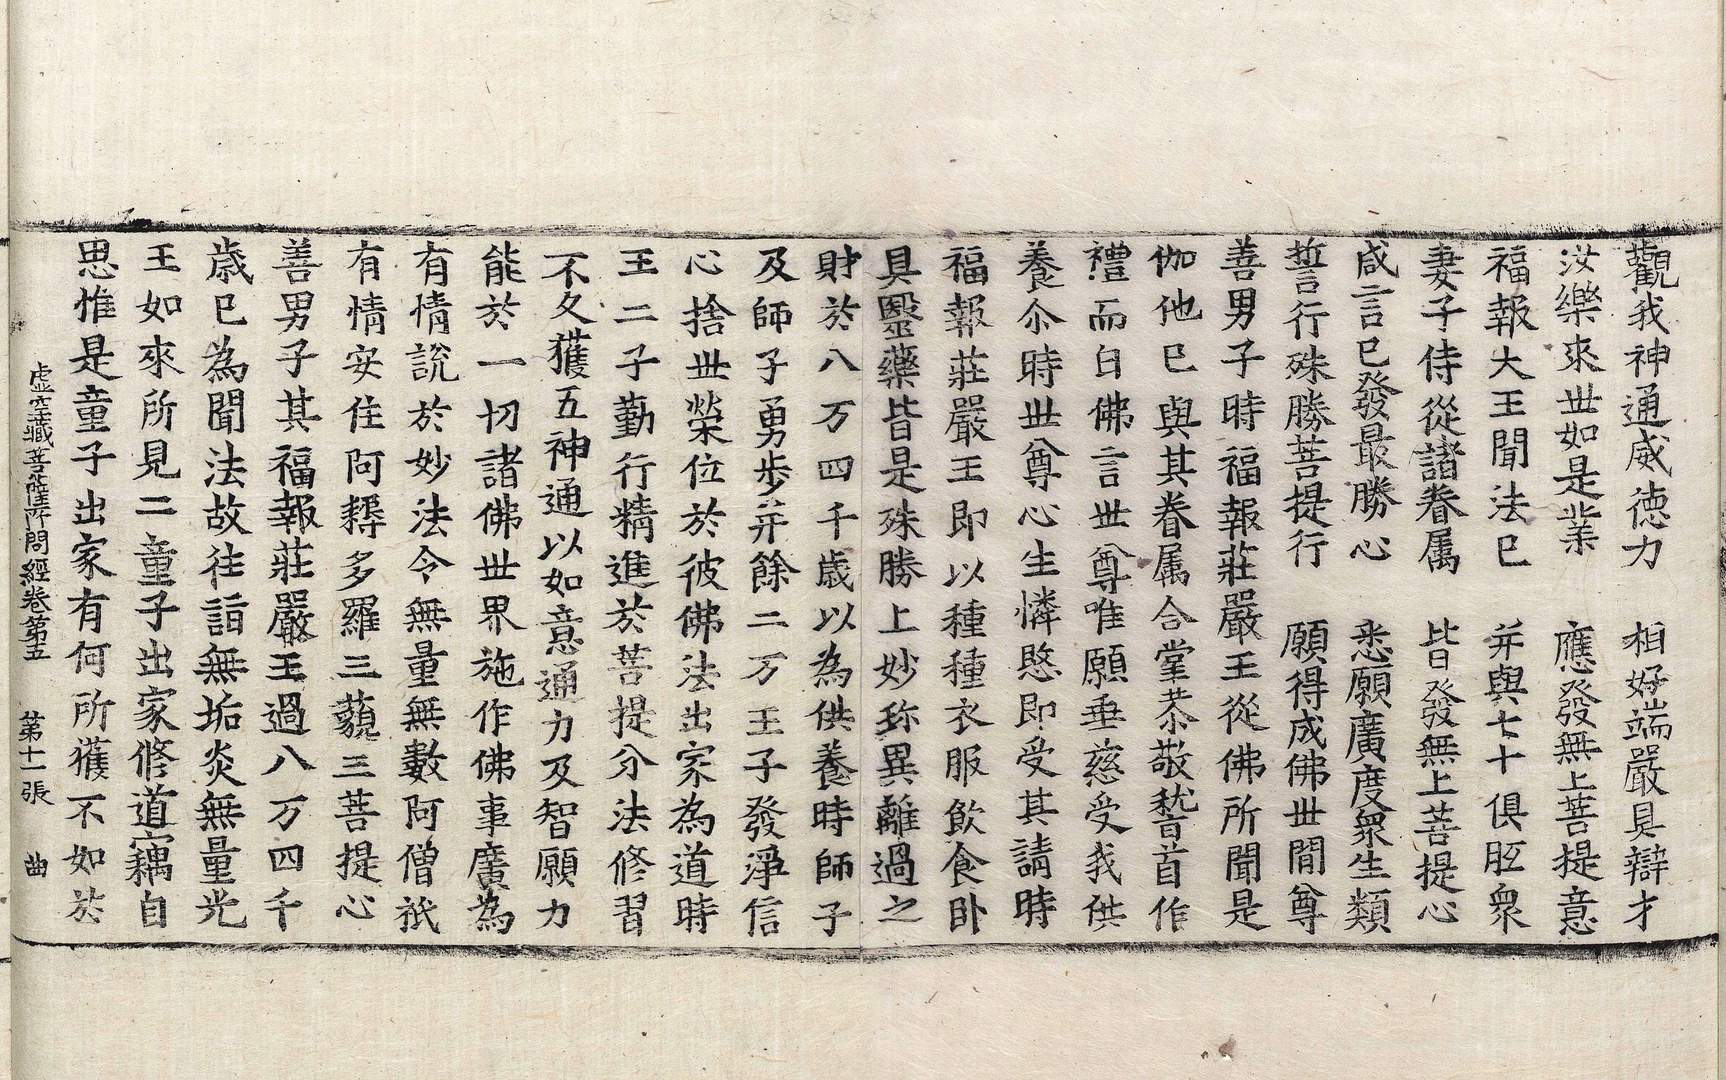 觀我神通威德力　相好端嚴具辯才
汝樂來世如是業　應發無上菩提意
福報大王聞法已　并與七十俱胝衆
妻子侍從諸眷属　皆發無上菩提心
咸言已發最勝心　悉願廣度衆生類
誓行殊勝菩提行　願得成佛世間尊
善男子時福報莊嚴王從佛所聞是
伽他已與其眷属合掌恭敬嵇首作
禮而白佛言世尊唯願垂慈受我供
養尒時世尊心生憐愍即受其請時
福報莊嚴王即以種種衣服飲食卧
具毉藥皆是殊勝上妙珎異離過之
財於八万四千歳以為供養時師子
及師子勇步并餘二万王子發淨信
心捨世榮位於彼佛法出家為道時
王二子勤行精進於菩提分法修習
不久獲五神通以如意通力及智願力
能於一切諸佛世界施作佛事廣為
有情說於妙法令無量無數阿僧祇
有情安住阿耨多羅三藐三菩提心
善男子其福報莊嚴王過八万四千
歳已為聞法故往詣無垢炎無量光
王如來所見二童子出家修道竊自
思惟是童子出家有何所獲不如於
虛空藏菩薩所問經卷第五　第十一張　曲